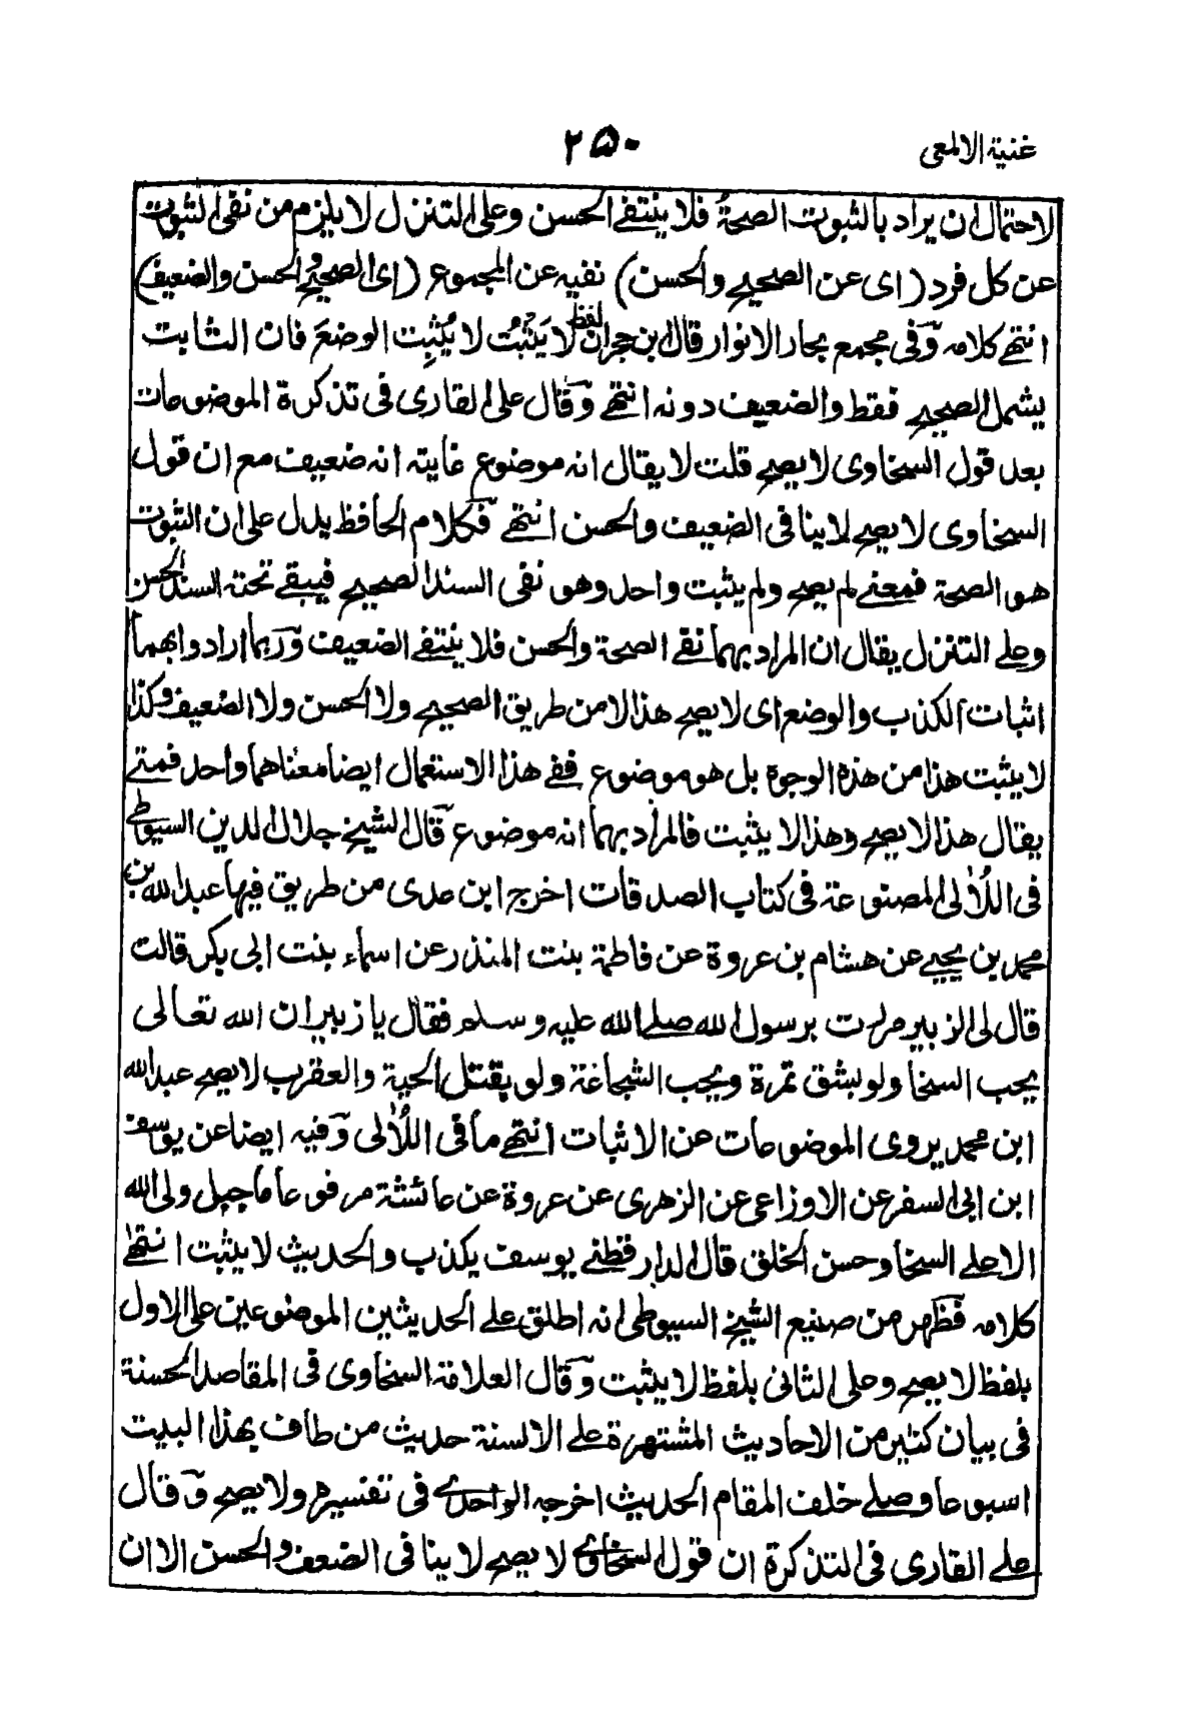 غنية الالمعى
۲۵۰
لاحتمال ان يراد بالثبوت الصحةُ فلا ينتفى الحسن وعلى التنزل لا يلزم من نفى الثبوت
عن كل فرد (اى عن الصحيح والحسن) نفيه عن المجموع (اى الصحيح والحسن والضعيف)
انتهى كلامه وفى مجمع بحار الانوار قال ابن حجر ان لفظ لا يَثْبُتُ لا يُثبِت الوضعَ فان الثابت
يشمل الصحيح فقط والضعيف دونه انتهى وقال على القارى فى تذكرة الموضوعات
بعد قول السخاوى لا يصح قلت لا يقال انه موضوع غايته انه ضعيف مع ان قول
السخاوى لا يصح لا ينافى الضعيف والحسن انتهى فكلام الحافظ يدل على ان الثبوت
هو الصحة فمعنى لم يصح ولم يثبت واحد وهو نفى السند الصحيح فيبقى تحته السند الحسن
وعلى التنزل يقال ان المراد بهما نفى الصحة والحسن فلا ينتفى الضعيف وربما ارادوا بهما
اثبات الكذب والوضع اى لا يصح هذا لا من طريق الصحيح ولا الحسن ولا الضعيف وكذا
لا يثبت هذا من هذه الوجوه بل هو موضوع ففى هذا الاستعمال ايضا معناهما واحد فمتى
يقال هذا لا يصح وهذا لا يثبت فالمراد بهما انه موضوع قال الشيخ جلال الدين السيوطى
فى اللآلى المصنوعة فى كتاب الصدقات اخرج ابن عدى من طريق فيها عبد الله بن
محمد بن يحيى عن هشام بن عروة عن فاطمة بنت المنذر عن اسماء بنت ابى بكر قالت
قال لى الزبير مررت برسول الله صلى الله عليه وسلم فقال يا زبير ان الله تعالى
يحب السخا ولو بشق تمرة ويحب الشجاعة ولو بقتل الحية والعقرب لا يصح عبد الله
ابن محمد يروى الموضوعات عن الاثبات انتهى ما فى اللآلى وفيه ايضا عن يوسف
ابن ابى السفر عن الاوزاعى عن الزهرى عن عروة عن عائشة مرفوعا ما جبل ولى الله
الا على السخا وحسن الخلق قال الدارقطنى يوسف يكذب والحديث لا يثبت انتهى
كلامه فظهر من صنيع الشيخ السيوطى انه اطلق على الحديثين الموضوعين على الاول
بلفظ لا يصح وعلى الثانى بلفظ لا يثبت وقال العلامة السخاوى فى المقاصد الحسنة
فى بيان كثير من الاحاديث المشتهرة على الالسنة حديث من طاف بهذا البيت
اسبوعا وصلى خلف المقام الحديث اخرجه الواحدى فى تفسيره ولا يصح وقال
على القارى فى التذكرة ان قول السخاوى لا يصح لا ينافى الضعف والحسن الا ان